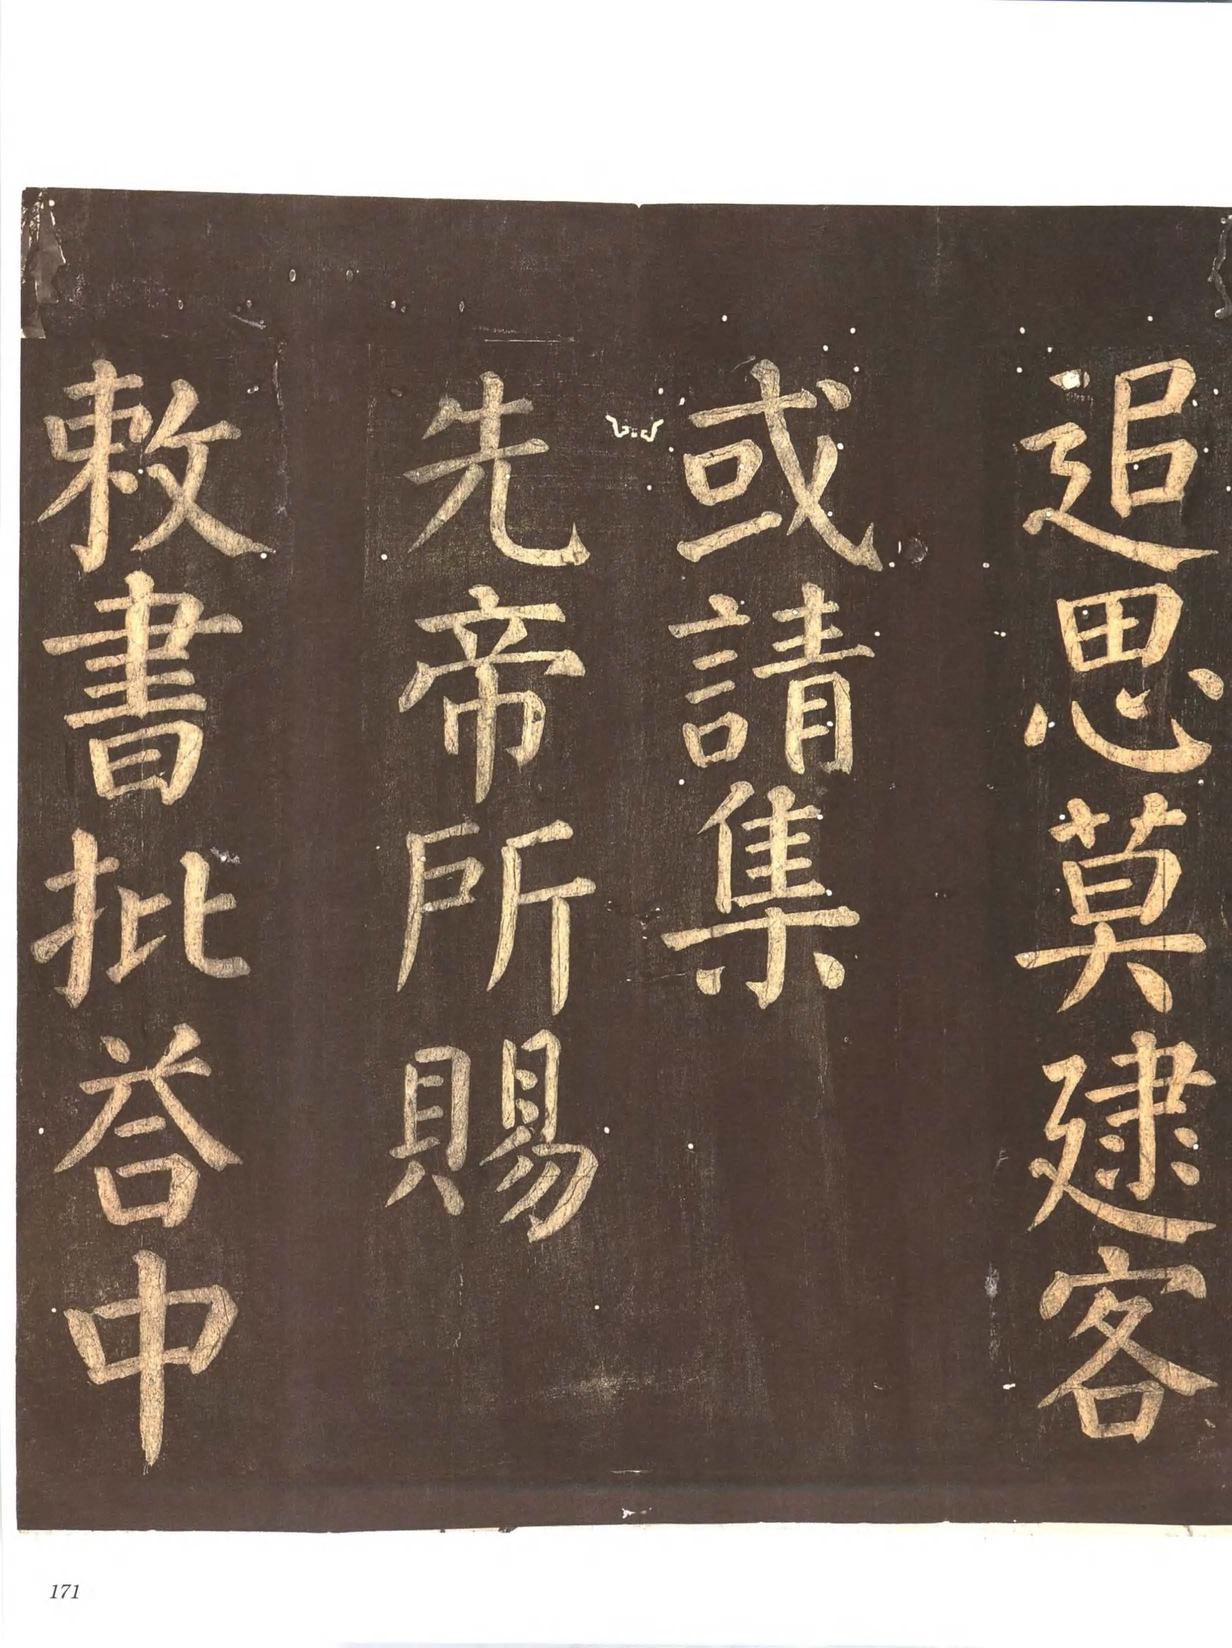 追思莫逮客
或請集
先帝所賜
敕書批荅中
171